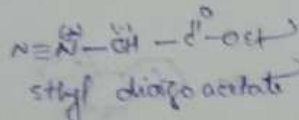 N≡N(+)—CH(-)—C(=O)—OEt
ethyl diazo acetate